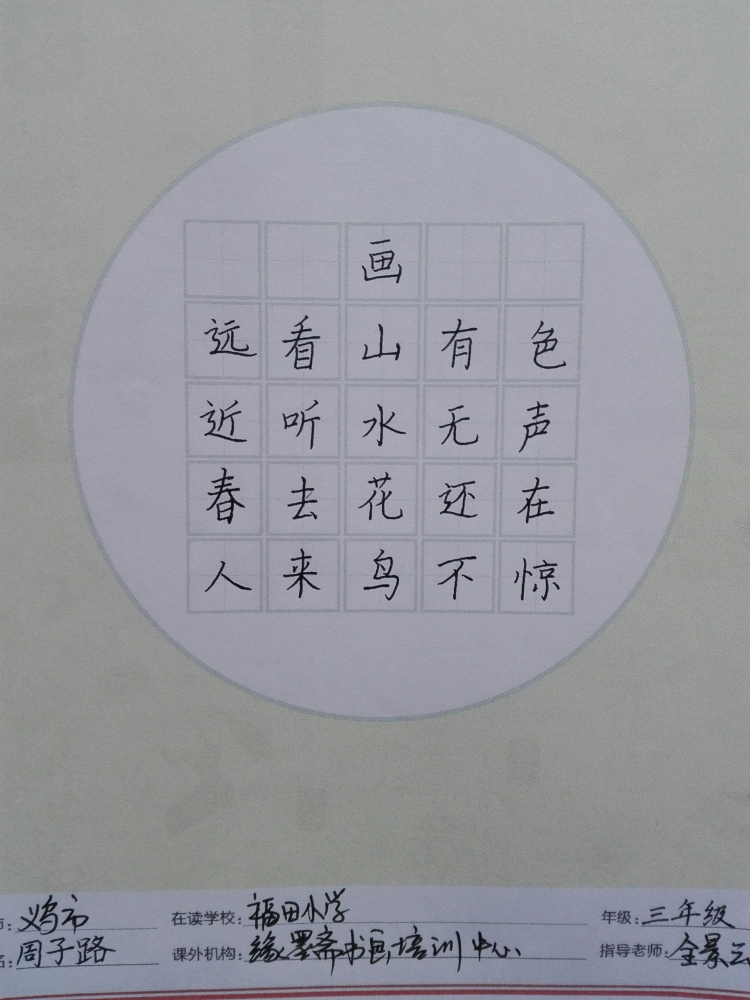 画
远看山有色
近听水无声
春去花还在
人来鸟不惊
市: 义乌市 在读学校: 福田小学 年级: 三年级
名: 周子路 课外机构: 缘墨斋书画培训中心 指导老师: 全景云